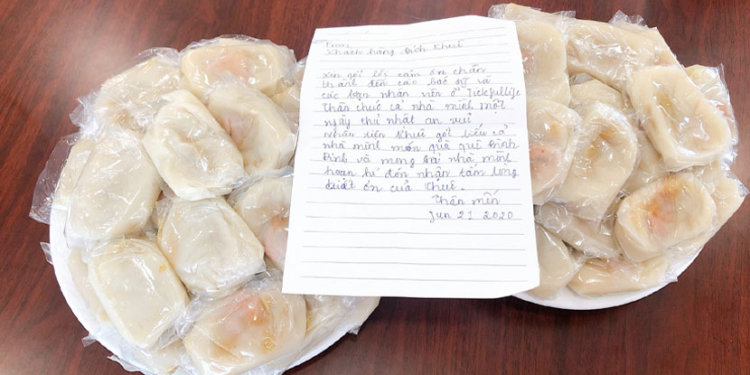 From
Khách hàng Bích Khuê
Xin gởi lời cảm ơn chân
thành đến các bác sỹ và
các bạn nhân viên ở
Thân chúc cả nhà mình một
ngày chủ nhật an vui
nhân tiện Khuê gởi biếu cả
nhà mình món quà quê bình
và mong cả nhà mình
hoan hỉ đón nhận tấm lòng
của Khuê.
Thân mến
Jun 21 2020